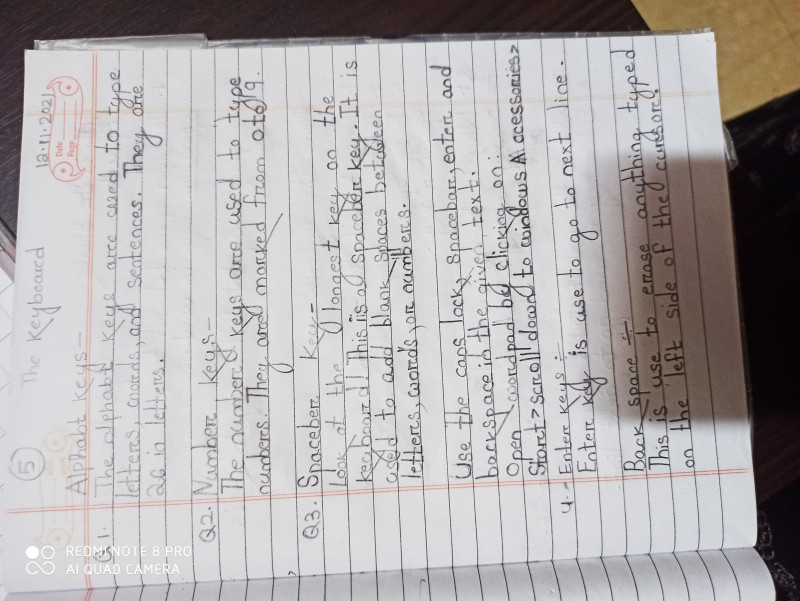 5 The Keyboard 12.11.2021
Date
Page
Alphabet Keys-
Q 1. The alphabet keys are used to type
letters, words, and sentences. They are
26 in letters.
Q2. Number Keys-
The number keys are used to type
numbers. They are marked from 0 to 9.
Q3. Spaceber Key-
Look at the longest key on the
keyboard! This is a spaceber key. It is
used to add blank spaces between
letters, words, or numbers.
Use the caps lock, spacebar, enter and
backspace in the given text.
Open wordpad by clicking on:
Start > scroll down to windows Accessories>
4.- Enter keys:-
Enter key is use to go to next line.
Back space :-
This is use to erase anything typed
on the left side of the cursor.
REDMI NOTE 8 PRO
AI QUAD CAMERA